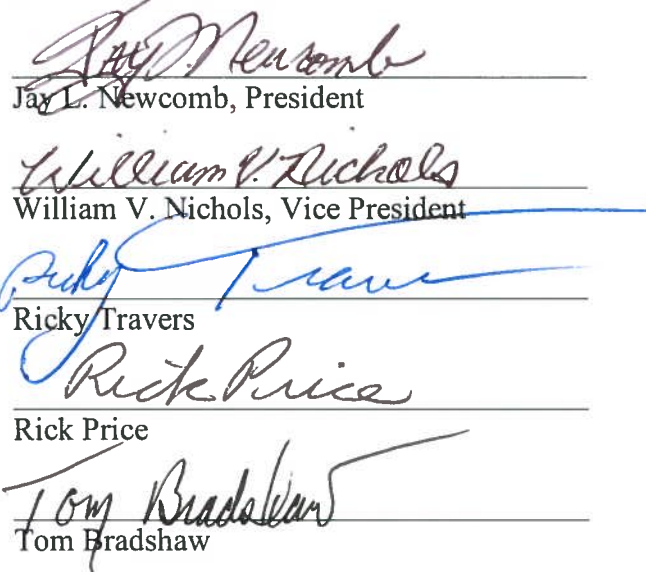 Jay L. Newcomb
Jay L. Newcomb, President
William V. Nichols
William V. Nichols, Vice President
Ricky Travers
Ricky Travers
Rick Price
Rick Price
Tom Bradshaw
Tom Bradshaw